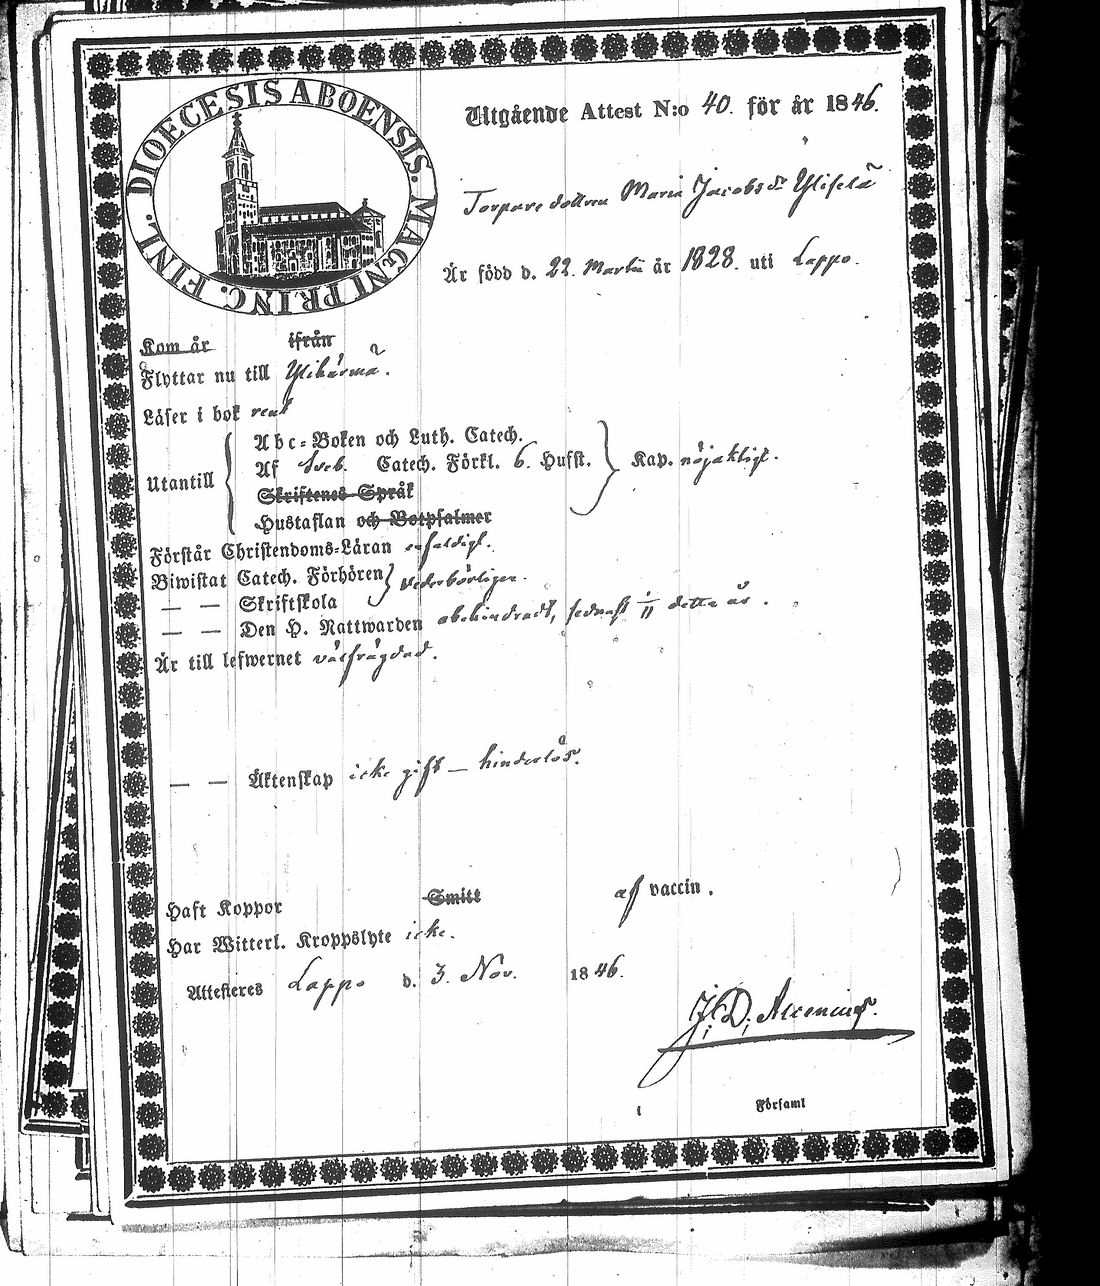 DIOECESIS ABOENSIS. MAGNI PRINC. FINL.
Utgående Attest N:o 40. för år 1846.
Torpare dottren Maria Jacobs dr Ylifelä
Är född d. 22. Martii år 1828. uti Lappo.
Kom år ifrån
Flyttar nu till Ylihärmä.
Läser i bok rent
Utantill
Abc-Boken och Luth. Catech.
Af Sveb. Catech. Förkl. 6. Hufst. Kap. nöjaktigt.
Skriftenes Språk
Hustaflan och Botpsalmer
Förstår Christendoms-Läran enfaldigt.
Biwistat Catech. Förhören vederbörligen.
— — Skriftskola
— — Den H. Nattwarden obehindradt, sednast 1/11 detta år.
Är till lefwernet välfrägdad.
— — Äktenskap icke gift — hinderlös.
Haft Koppor Smitt af vaccin.
Har Witterl. Kroppslyte icke.
Attesteres Lappo d. 3. Nov. 1846.
J. D. Alcenius.
i Församl